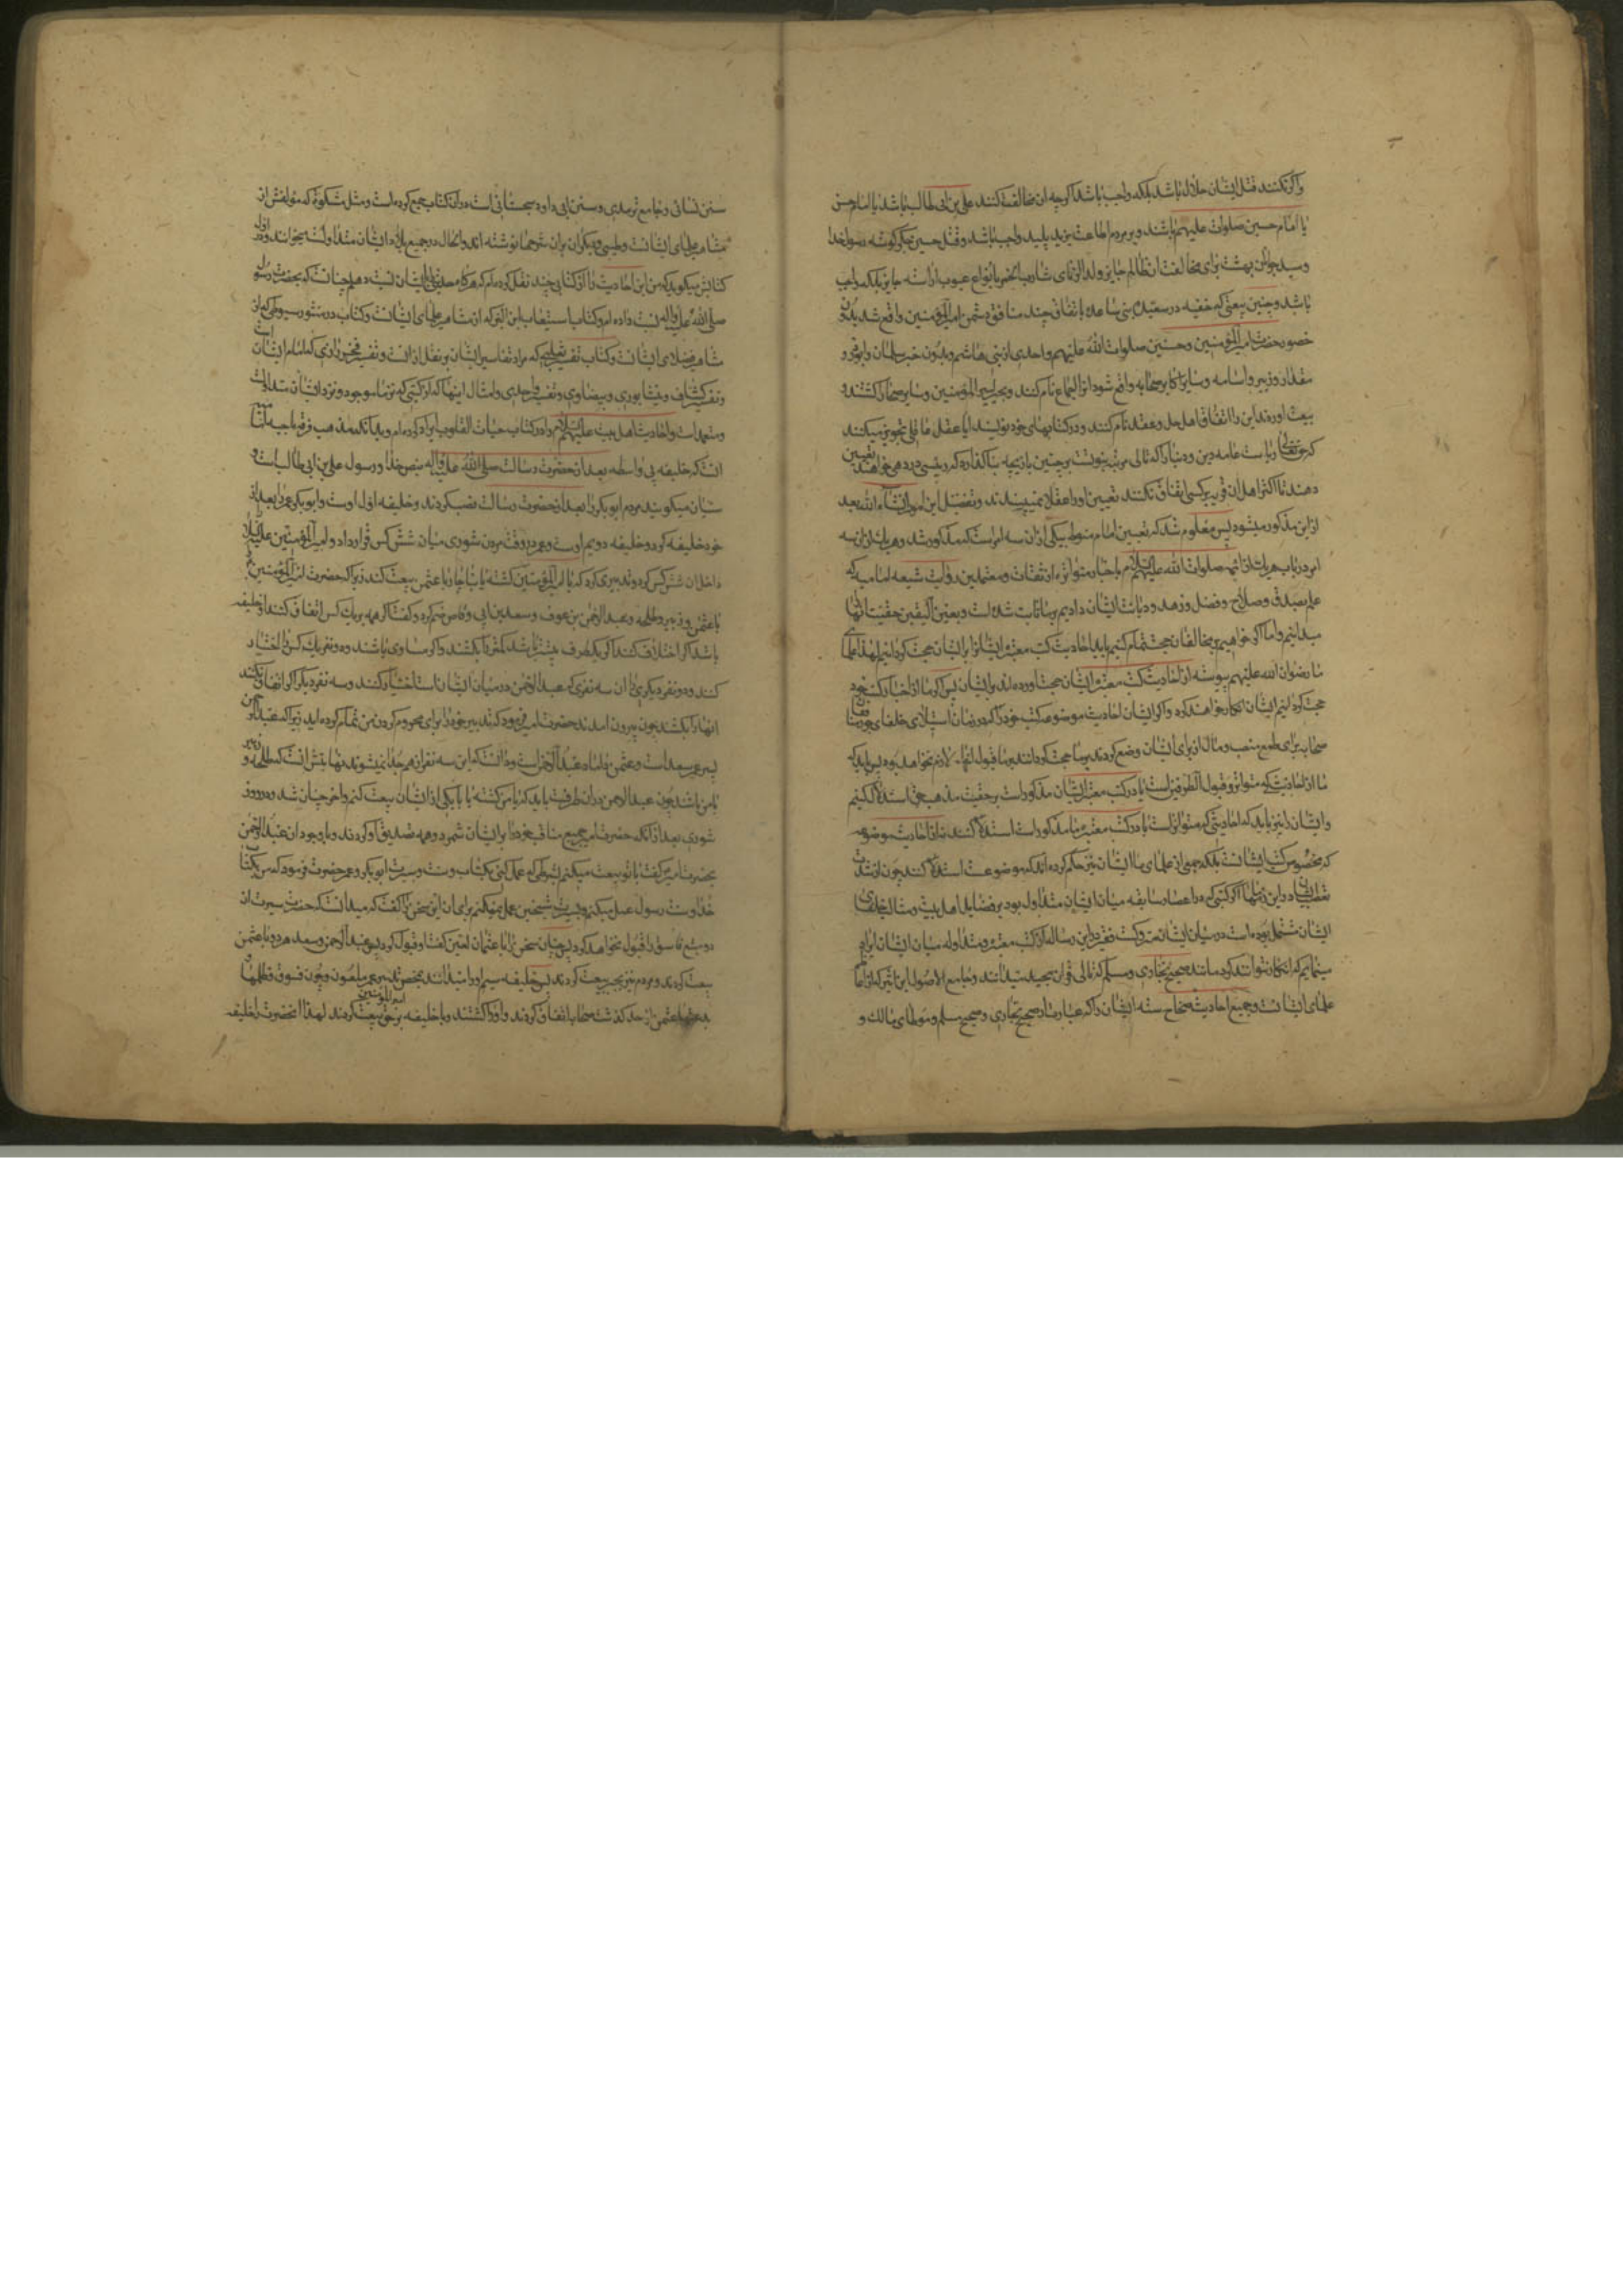 واکر نکنند قتل ایشان حلال باشد بلکه واجب باشد اکرچه ان مخالفت کنند علی بن ابی طالب باشد یا امام حسن
یا امام حسین صلوات علیهم باشند و بر مردم اطاعت یزید پلید واجب باشد و قتل حسین جکرکوشه رسول خدا
و سید جوانان بهشت برای مخالفت ان ظالم جابر ولد الزنای شارب الخمر بانواع عیوب اراسته جایز بلکه واجب
باشد و چنین بیعتی که خفیه در سقیفه بنی ساعده باتفاق چند منافق دشمن امیر المؤمنین واقع شد بدون
حضور حضرت امیر المؤمنین و حسنین صلوات الله علیهم واحدی از بنی هاشم و بدون خبر سلمان و ابوذر و
مقداد و زبیر و اسامه و سایر اکابر صحابه واقع شود انرا اجماع نام کنند و بجبر امیر المؤمنین و سایر صحابه را کشند و
بیعت اورند این را اتفاق اهل حل و عقد نام کنند و در کتابهای خود نویسند ایا عقل عاقلی تجویز میکند
که حق تعالی ریاست عامه دین و دنیا را که تالی مرتبه نبوتست بر چنین بازیچه بنا کذارد که رئیسی در دهی خواهند تعیین
دهند تا اکثر اهل ان قریه بر کسی اتفاق نکنند تعیین او را عقلا نمیپسندند و تفصیل این امور انشاء الله بعد
ازین مذکور میشود پس معلوم شد که تعیین امام منوط بیکی از ان سه امر است که مذکور شد و هر یک از ان سه
امر در باب هر یک از ائمه صلوات الله علیهم باخبار متواتره از ثقات و معتمدین روات شیعه امامیه که
علم بصدق و صلاح و فضل و زهد و دیانت ایشان داریم بر ما ثابت شده است و بعین الیقین حقیت انها
میدانیم و اما اکر خواهیم بر مخالفان حجت تمام کنیم باید باحادیث کتب معتبره ایشان را بر ایشان حجت کردانیم لهذا علمای
ما رضوان الله علیهم پیوسته از احادیث کتب معتبره ایشان حجت اورده اند بر ایشان پس اکر ما از اخبار کتب خود
حجت کردانیم ایشان انکار خواهند کرد واکر ایشان احادیث موضوعه کتب خود را که در زمان استیلای خلفای جور منافقان
صحابه برای طمع منصب و مال از برای ایشان وضع کردند بر ما حجت کردانند بر ما قبول انها لازم نخواهد بود پس باید که
ما از احادیثی که متواتر و قبول الطرفین است یا در کتب معتبره ایشان مذکور است بر حقیت مذهب حق استدلال کنیم
و ایشان را نیز باید که احادیثی که متواتر است یا در کتب معتبره ما مذکور است استدلال کنند نه از احادیث موضوعه
که مخصوص کتب ایشانست بلکه جمعی از علمای ما ایشان نیز حکم کرده اند که موضوعست استدلال کنند چون
در این زمانها اکثر کتبی که در اعصار سابقه میان ایشان متداول بود بر فضایل اهل بیت و مثالب خلفای
ایشان مشتمل بوده است در میان ایشان متروکست فقیر در این رساله از کتب معتبره و متداوله میان ایشان ایراد
مینمایم که انکار نتوانند کرد مانند صحیح بخاری و مسلم که تالی قران مجید میدانند و جامع الاصول ابن اثیر که از اعاظم
علمای ایشانست و جمیع احادیث صحاح سته ایشان را که عبارت از صحیح بخاری و صحیح مسلم و موطای مالک و
سنن نسائی و جامع ترمذی و سنن ابی داود سجستانی است در ان کتاب جمع کرده است و مثل مشکوة که مؤلفش از
مشاهیر علمای ایشانست و طیبی و دیکران بران شرحها نوشته اند و الحال در جمیع بلاد ایشان متداولست میخوانند و در اول
کتابش میکوید که من این احادیث را از کتابی چند نقل کرده ام که هر کاه حدیثی بایشان نسبت دهم چنانست که بحضرت رسول
صلی الله علیه واله نسبت داده ام و کتاب استیعاب ابن البر که از مشاهیر علمای ایشانست و کتاب در منثور سیوطی که از
مشاهیر فضلای ایشانست و کتاب تفسیر ثعلبی که مدار تفاسیر ایشان بر نقل از انست و تفسیر فخر رازی که امام ایشان است
و تفسیر کشاف و نیشابوری و بیضاوی و تفسیر واحدی و امثال اینها که از کتبی که نزد ما موجود و نزد ایشان متداولست
و معتمد است و احادیث اهل بیت علیهم السلام را در کتاب حیات القلوب ایراد کرده ام و بدانکه مذهب فرقه ناجیه امامیه
انست که خلیفه بی واسطه بعد از حضرت رسالت صلی الله علیه واله بنص خدا و رسول علی بن ابی طالب است و
سنیان میکویند مردم ابو بکر را بعد از حضرت رسالت نصب کردند و خلیفه اول اوست و ابو بکر عمر را بعد از
خود خلیفه کرد و خلیفه دویم اوست و عمر در وقت مردن شوری میان شش کس قرار داد و امیر المؤمنین علیه السلام
داخل ان شش کس کرد و تدبیری کرد که یا امیر المؤمنین کشته یا ناچار با عثمن بیعت کند زیرا که حضرت امیر المؤمنین را
با عثمن و زبیر و طلحه و عبد الرحمن بن عوف و سعد بن ابی وقاص ضم کرد و کفت اکر همه بر یک کس اتفاق کنند او خلیفه
باشد اکر اختلاف کنند اکر یکطرف بیشتر باشد کمتر را بکشند و اکر مساوی باشند دو نفر یک کس را اختیار
کنند و دو نفر دیکری را ان سه نفری که عبد الرحمن در میان ایشان است اختیار کنند و سه نفر دیکر اکر اتفاق نکنند
انها را بکشند چون بیرون امدند حضرت امیر فرمود که تدبیر خود را برای محروم کردن من تمام کرده اید زیرا که عبد الرحمن
پسر عم سعد است و عثمن داماد عبد الرحمن است و دانست که این سه نفر از هم جدا نمیشوند نهایتش انست که طلحه و زبیر
با من باشد چون عبد الرحمن در ان طرفست باید که یا من کشته یا با یکی از ایشان بیعت کنم و اخر چنان شد و در روز
شوری بعد از انکه حضرت امیر جمیع مناقب خود را بر ایشان شمرد و همه تصدیق او کردند و با وجود ان عبد الرحمن
بحضرت امیر کفت با تو بیعت میکنم بشرطی که عمل کنی بکتاب و سنت و سیرت ابو بکر و عمر حضرت فرمود که من بکتاب
خدا و سنت رسول عمل میکنم و بسیرت شیخین عمل نمیکنم برای ان این سخن را کفت که میدانست که حضرت سیرت ان
دو را قبول نخواهد کرد پس چنان سخن را با عثمان لعین کفت او قبول کرد پس عبد الرحمن و سعد هر دو با عثمن
بیعت کردند و مردم نیز بجبر بیعت کردند پس خلیفه سیم او را میدانند بنص تدبیر عمر ملعون و چون فسوق و ظلمهای
بدعتهای عثمن از حد کذشت صحابه اتفاق کردند و او را کشتند و با خلیفه بر حق امیر المؤمنین بیعت کردند لهذا انحضرت را خلیفه